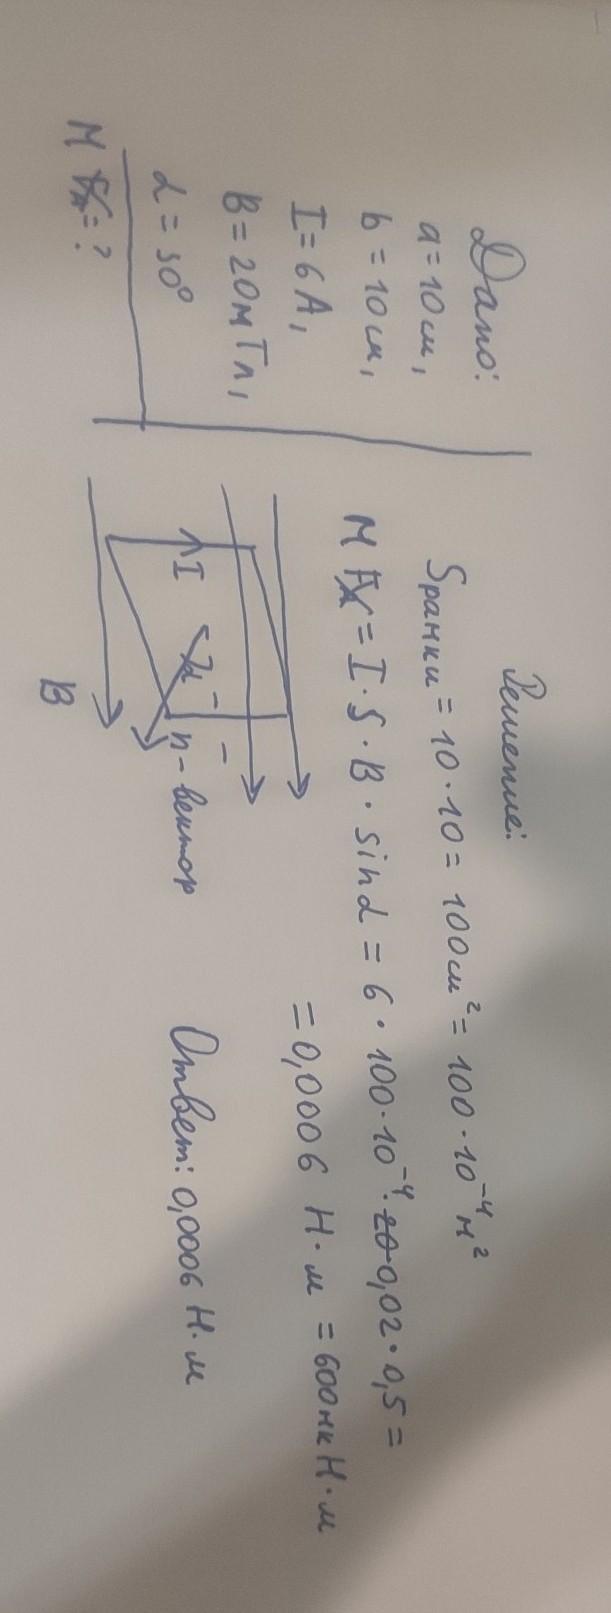 Дано:
a = 10 см,
b = 10 см,
I = 6 А,
B = 20 мТл,
α = 30°
M = ?
Решение:
Sрамки = 10 · 10 = 100 см² = 100 · 10⁻⁴ м²
M = I · S · B · sin α = 6 · 100 · 10⁻⁴ · 0,02 · 0,5 =
= 0,0006 Н·м = 600 мкН·м
I
α
n - вектор
B
Ответ: 0,0006 Н·м